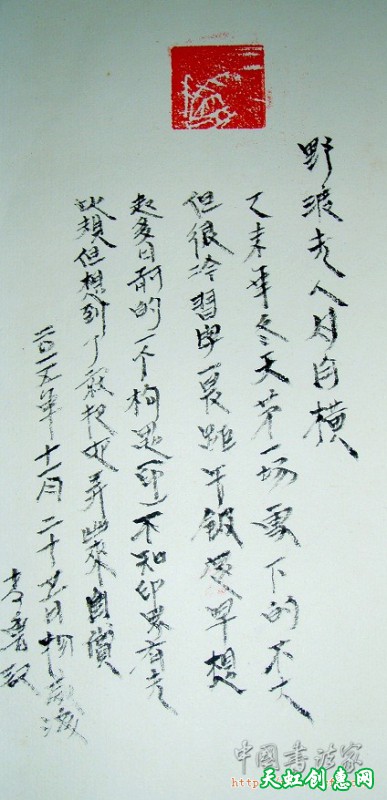 野渡无人舟自横
乙未年冬天第一场雪下的不大
但很冷習字一 距午飯 早想
起多日前的一个构思(印)不知印界有无
此類但想到了就把 弄出來自
二〇一五年十一月二十 日
记
中国書法家
http
天虹创惠网